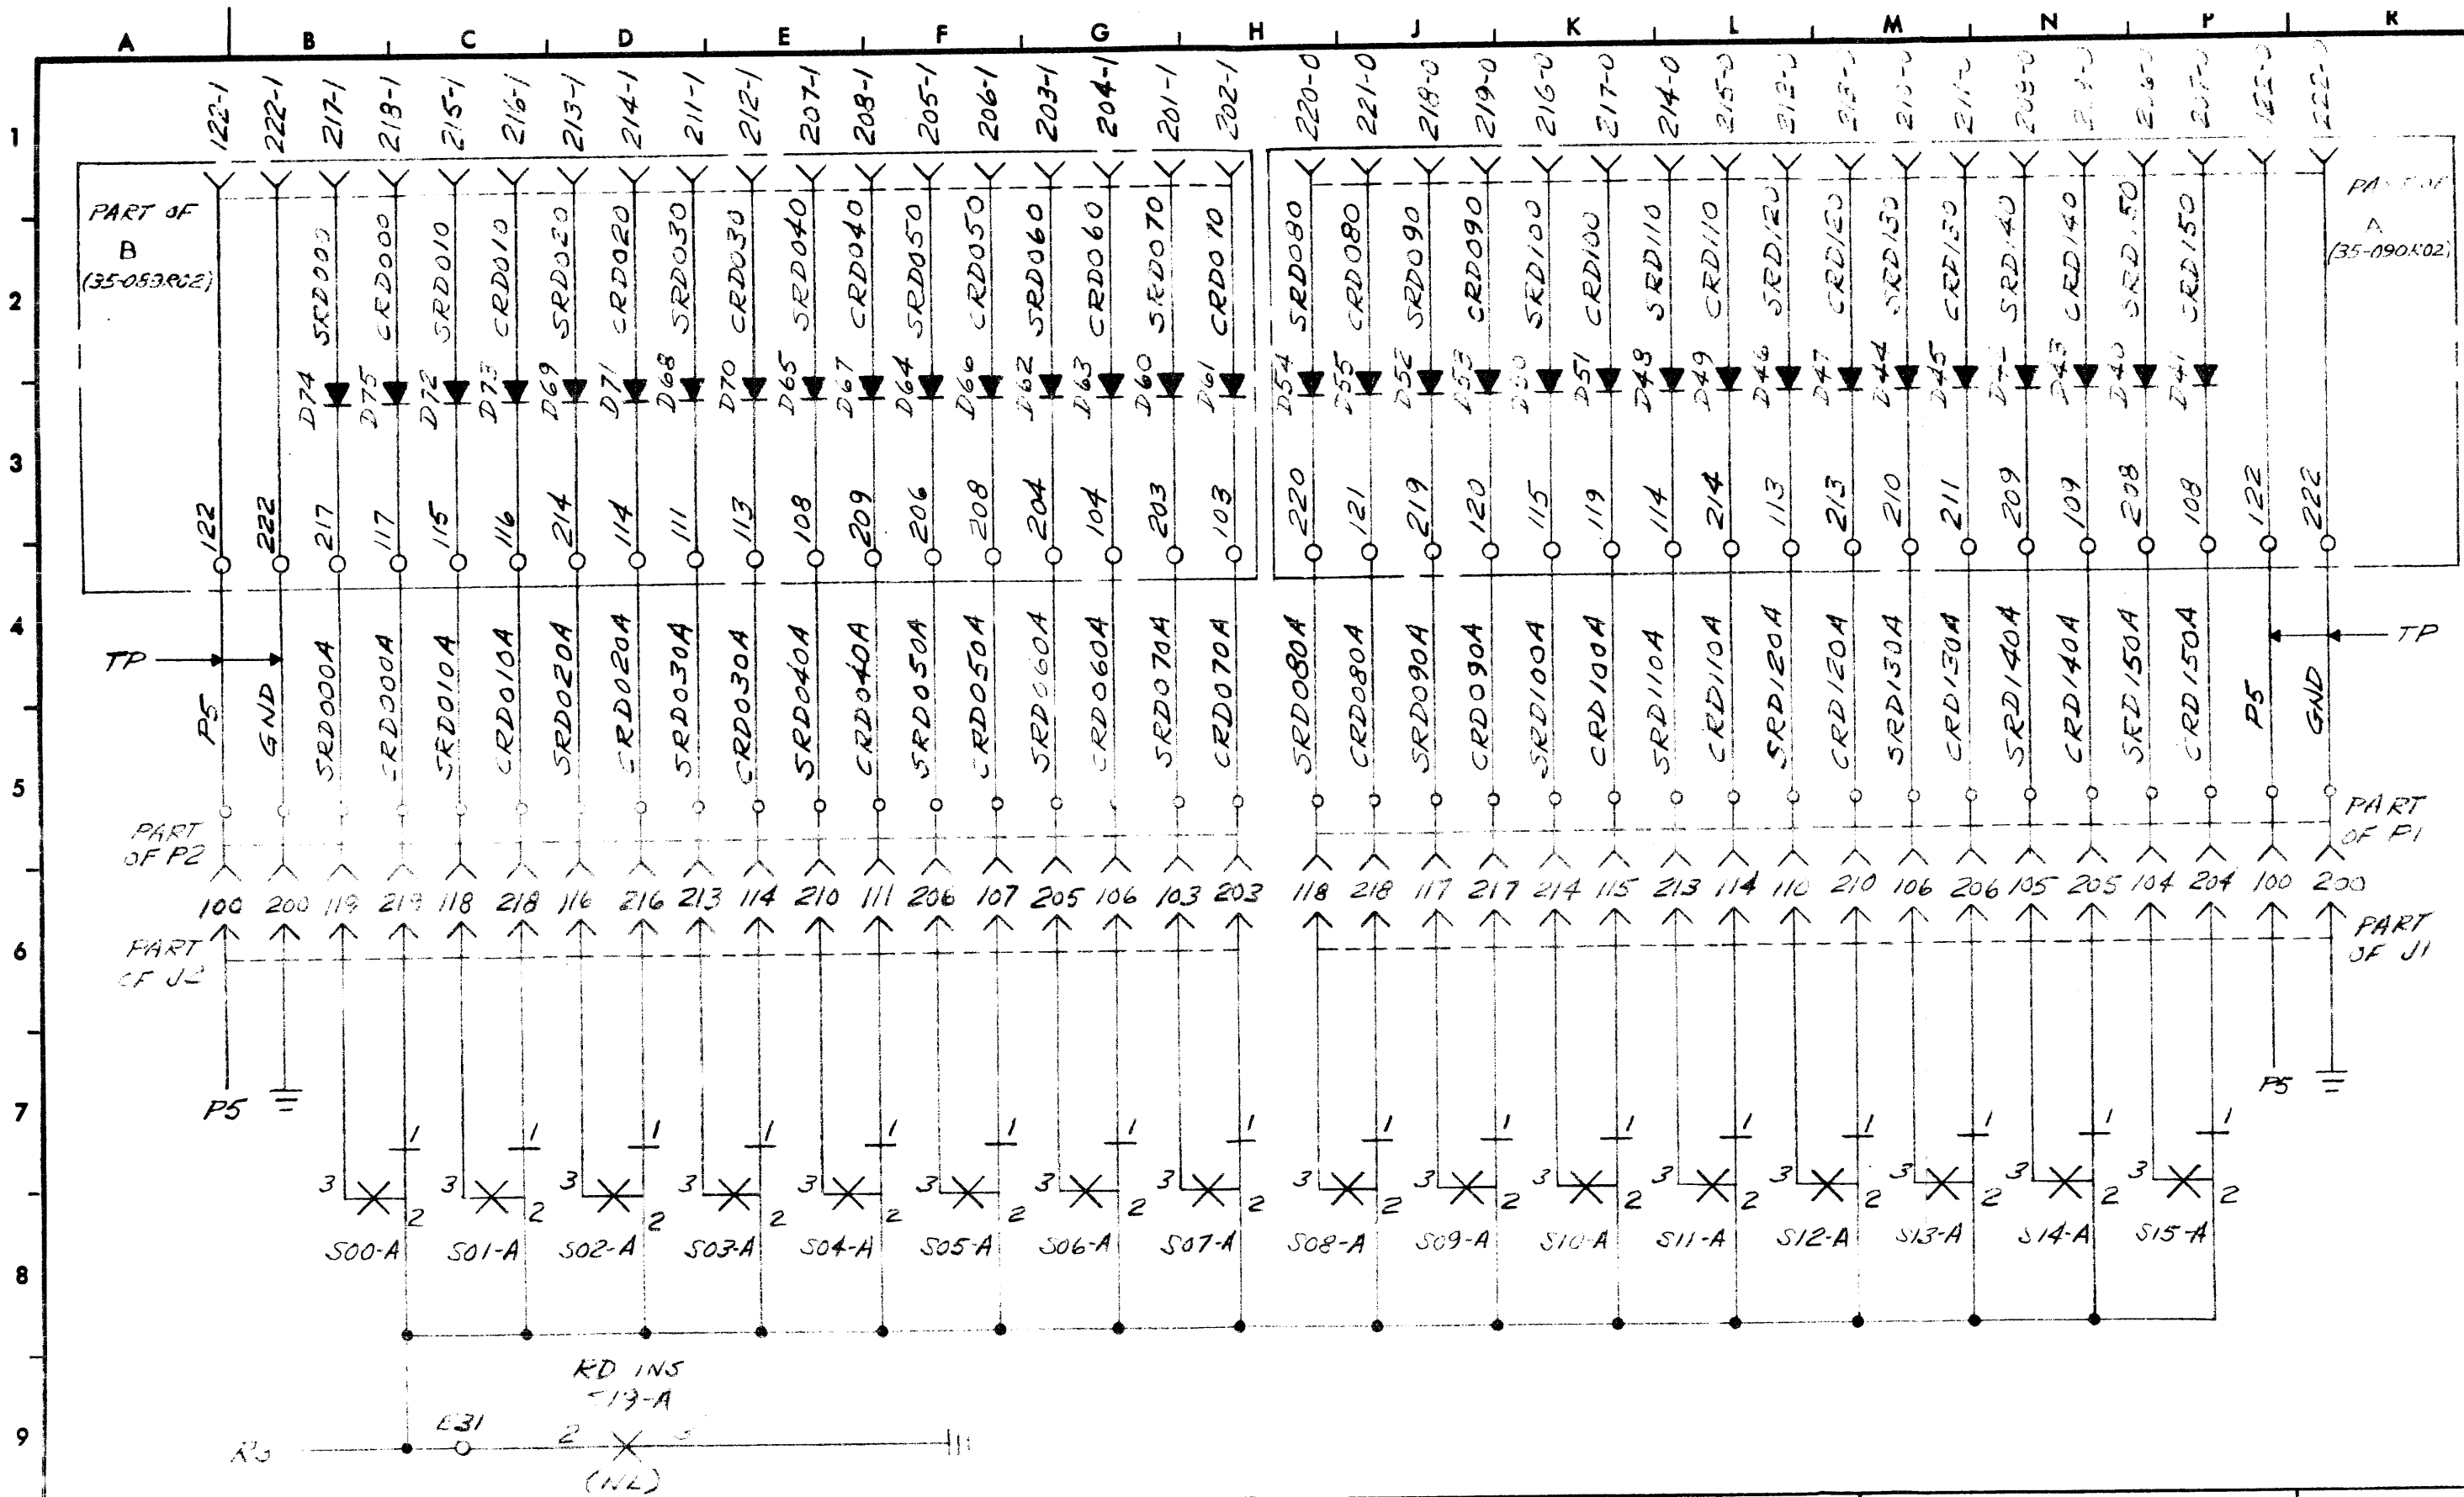 A B C D E F G H J K L M N P R
1
2
3
4
5
6
7
8
9
122-1 222-1 217-1 218-1 215-1 216-1 213-1 214-1 211-1 212-1 207-1 208-1 205-1 206-1 203-1 204-1 201-1 202-1 220-0 221-0 218-0 219-0 216-0 217-0 214-0 215-0 212-0 213-0 210-0 211-0 208-0 206-0 207-0 122-0 222-0
PART OF
B
(35-089R02)
PART OF
A
(35-090R02)
SRD000 CRD000 SRD010 CRD010 SRD020 CRD020 SRD030 CRD030 SRD040 CRD040 SRD050 CRD050 SRD060 CRD060 SRD070 CRD070 SRD080 CRD080 SRD090 CRD090 SRD100 CRD100 SRD110 CRD110 SRD120 CRD120 SRD130 CRD130 SRD140 CRD140 SRD150 CRD150
D74 D75 D72 D73 D69 D71 D68 D70 D65 D67 D64 D66 D62 D63 D60 D61 D54 D55 D52 D53 D50 D51 D48 D49 D46 D47 D44 D45 D43 D40 D41
122 222 217 117 115 116 214 114 111 113 108 209 206 208 204 104 203 103 220 121 219 120 115 119 114 214 113 213 210 211 209 109 208 108 122 222
TP
TP
P5 GND SRD000A CRD000A SRD010A CRD010A SRD020A CRD020A SRD030A CRD030A SRD040A CRD040A SRD050A CRD050A SRD060A CRD060A SRD070A CRD070A SRD080A CRD080A SRD090A CRD090A SRD100A CRD100A SRD110A CRD110A SRD120A CRD120A SRD130A CRD130A SRD140A CRD140A SRD150A CRD150A P5 GND
PART
OF P2
PART
OF P1
100 200 119 219 118 218 116 216 213 114 210 111 206 107 205 106 103 203 118 218 117 217 214 115 213 114 110 210 106 206 105 205 104 204 100 200
PART
OF J2
PART
OF J1
P5
P5
1 1 1 1 1 1 1 1 1 1 1 1 1 1 1 1
3 2 3 2 3 2 3 2 3 2 3 2 3 2 3 2 3 2 3 2 3 2 3 2 3 2 3 2 3 2 3 2
S00-A S01-A S02-A S03-A S04-A S05-A S06-A S07-A S08-A S09-A S10-A S11-A S12-A S13-A S14-A S15-A
RD INS
19-A
E31
2 3
(NL)